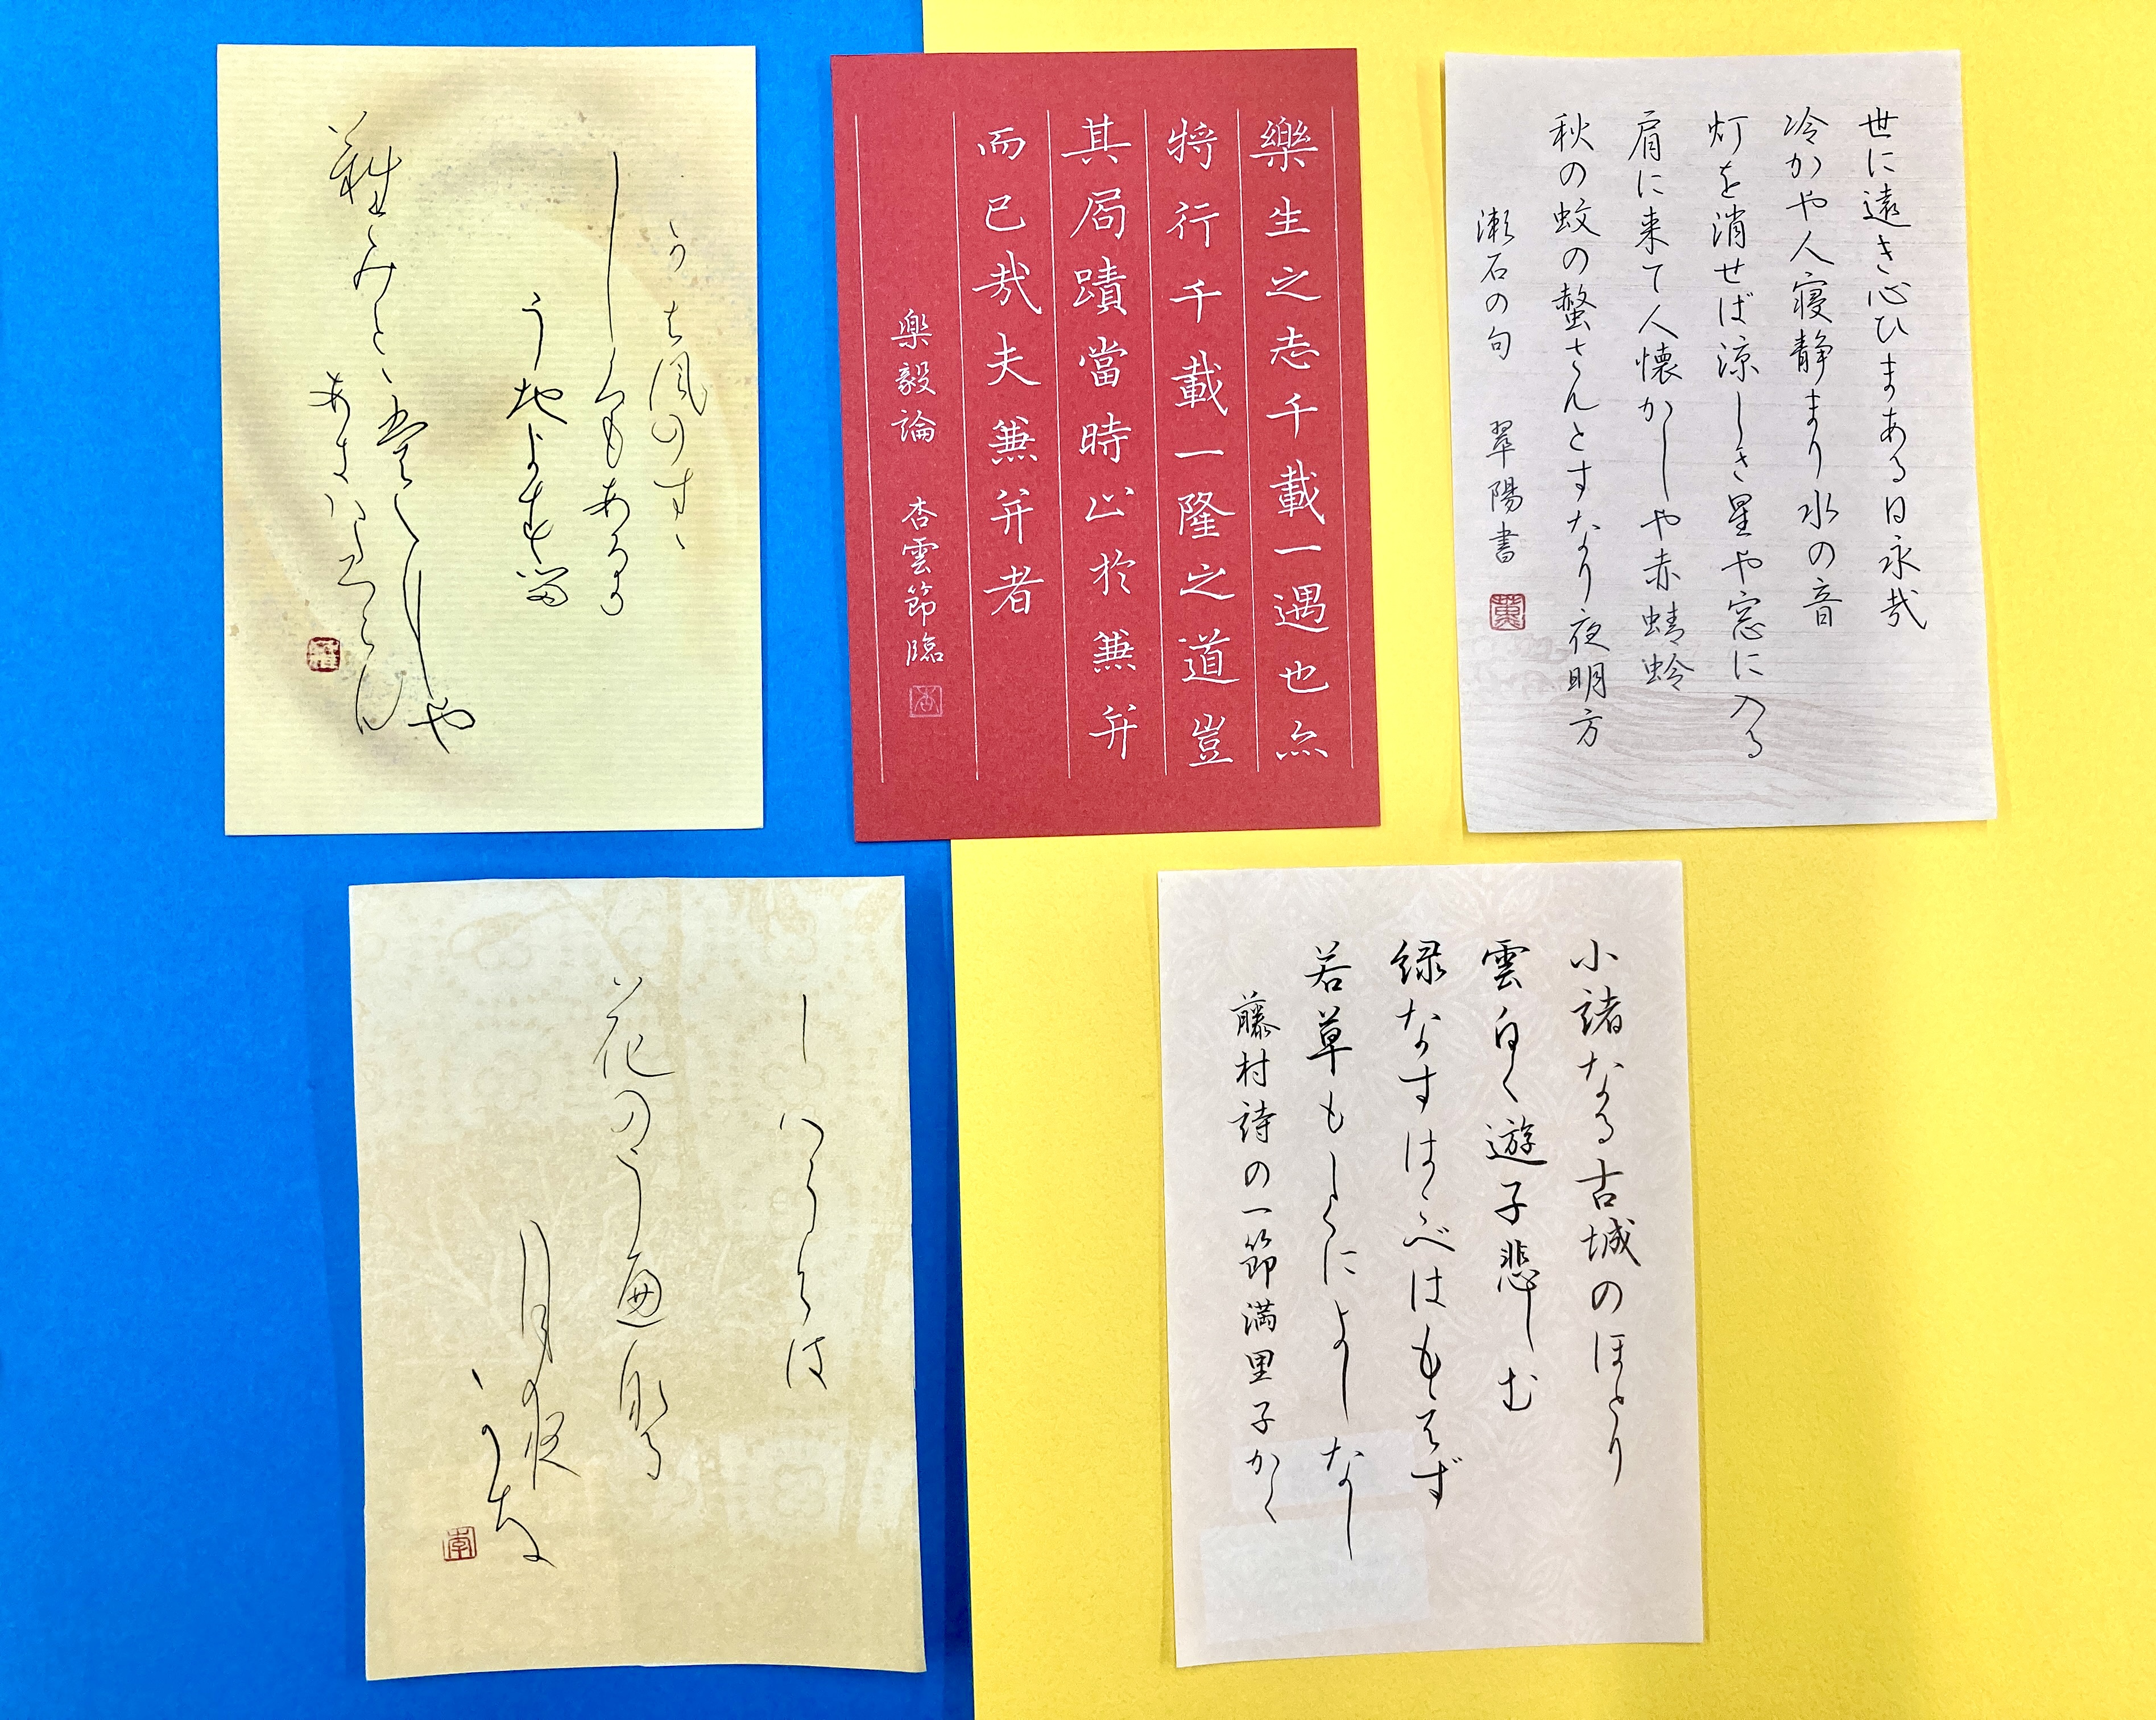 世に遠き心ひまある日永哉
冷かや人寝静まり水の音
灯を消せば涼しき星や窓に入る
肩に来て人懐かしや赤蜻蛉
秋の蚊の螫さんとすなり夜明方
漱石の句 翠陽書
樂生之志千載一遇也亦
将行千載一隆之道豈
其局蹟當時止於兼并
而已哉夫兼并者
楽毅論 杏雲節臨
かは風のすゝ
しくもあるか
う地よする
難みとゝ裳にしや
あきハたつらん
小諸なる古城のほとり
雲白く遊子悲しむ
緑なすはこべはもえず
若草もしくによしなし
藤村詩の一節満里子かく
しハらくは
花のう遍那る
月夜
かな